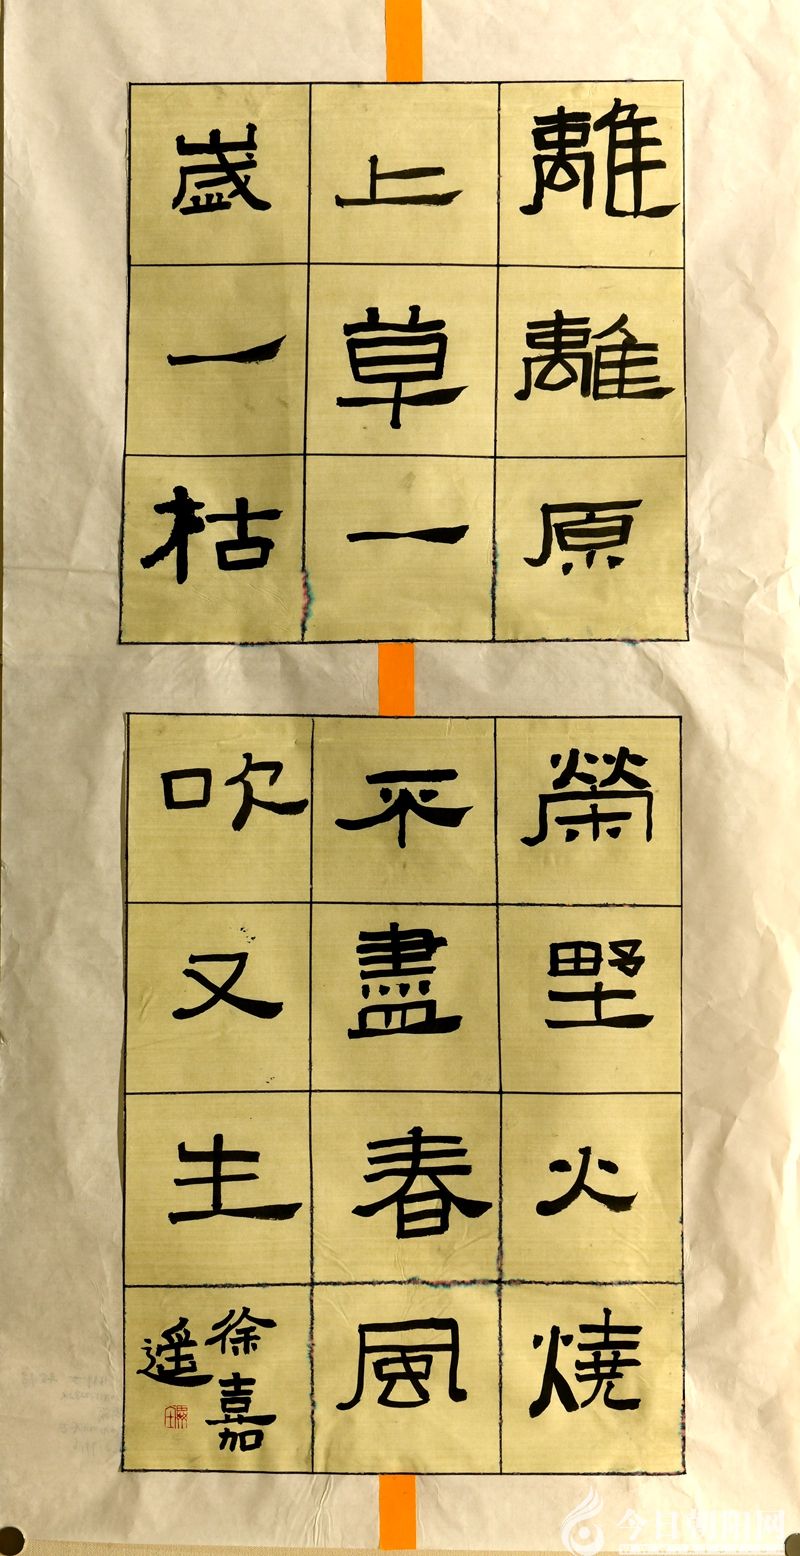 離離原
上草一
歲一枯
榮野火燒
不盡春風
吹又生
徐嘉
遥
今日朝阳网